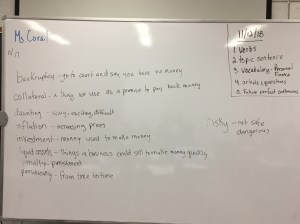 Ms. Coral
11/17
bankruptcy - go to court and say you have no money
collateral - a thing we use as a promise to pay back money
daunting - scary, exciting, difficult
inflation - increasing prices
investment - money used to make money
liquid assets - things a business could sell to make money quickly
penalty - punishment
periodically - from time to time
risky - not safe
dangerous
11/12/18
1. Verbs
2. topic sentence
3. Vocabulary - Personal
Finance
4. article questions
5. Future perfect continuous